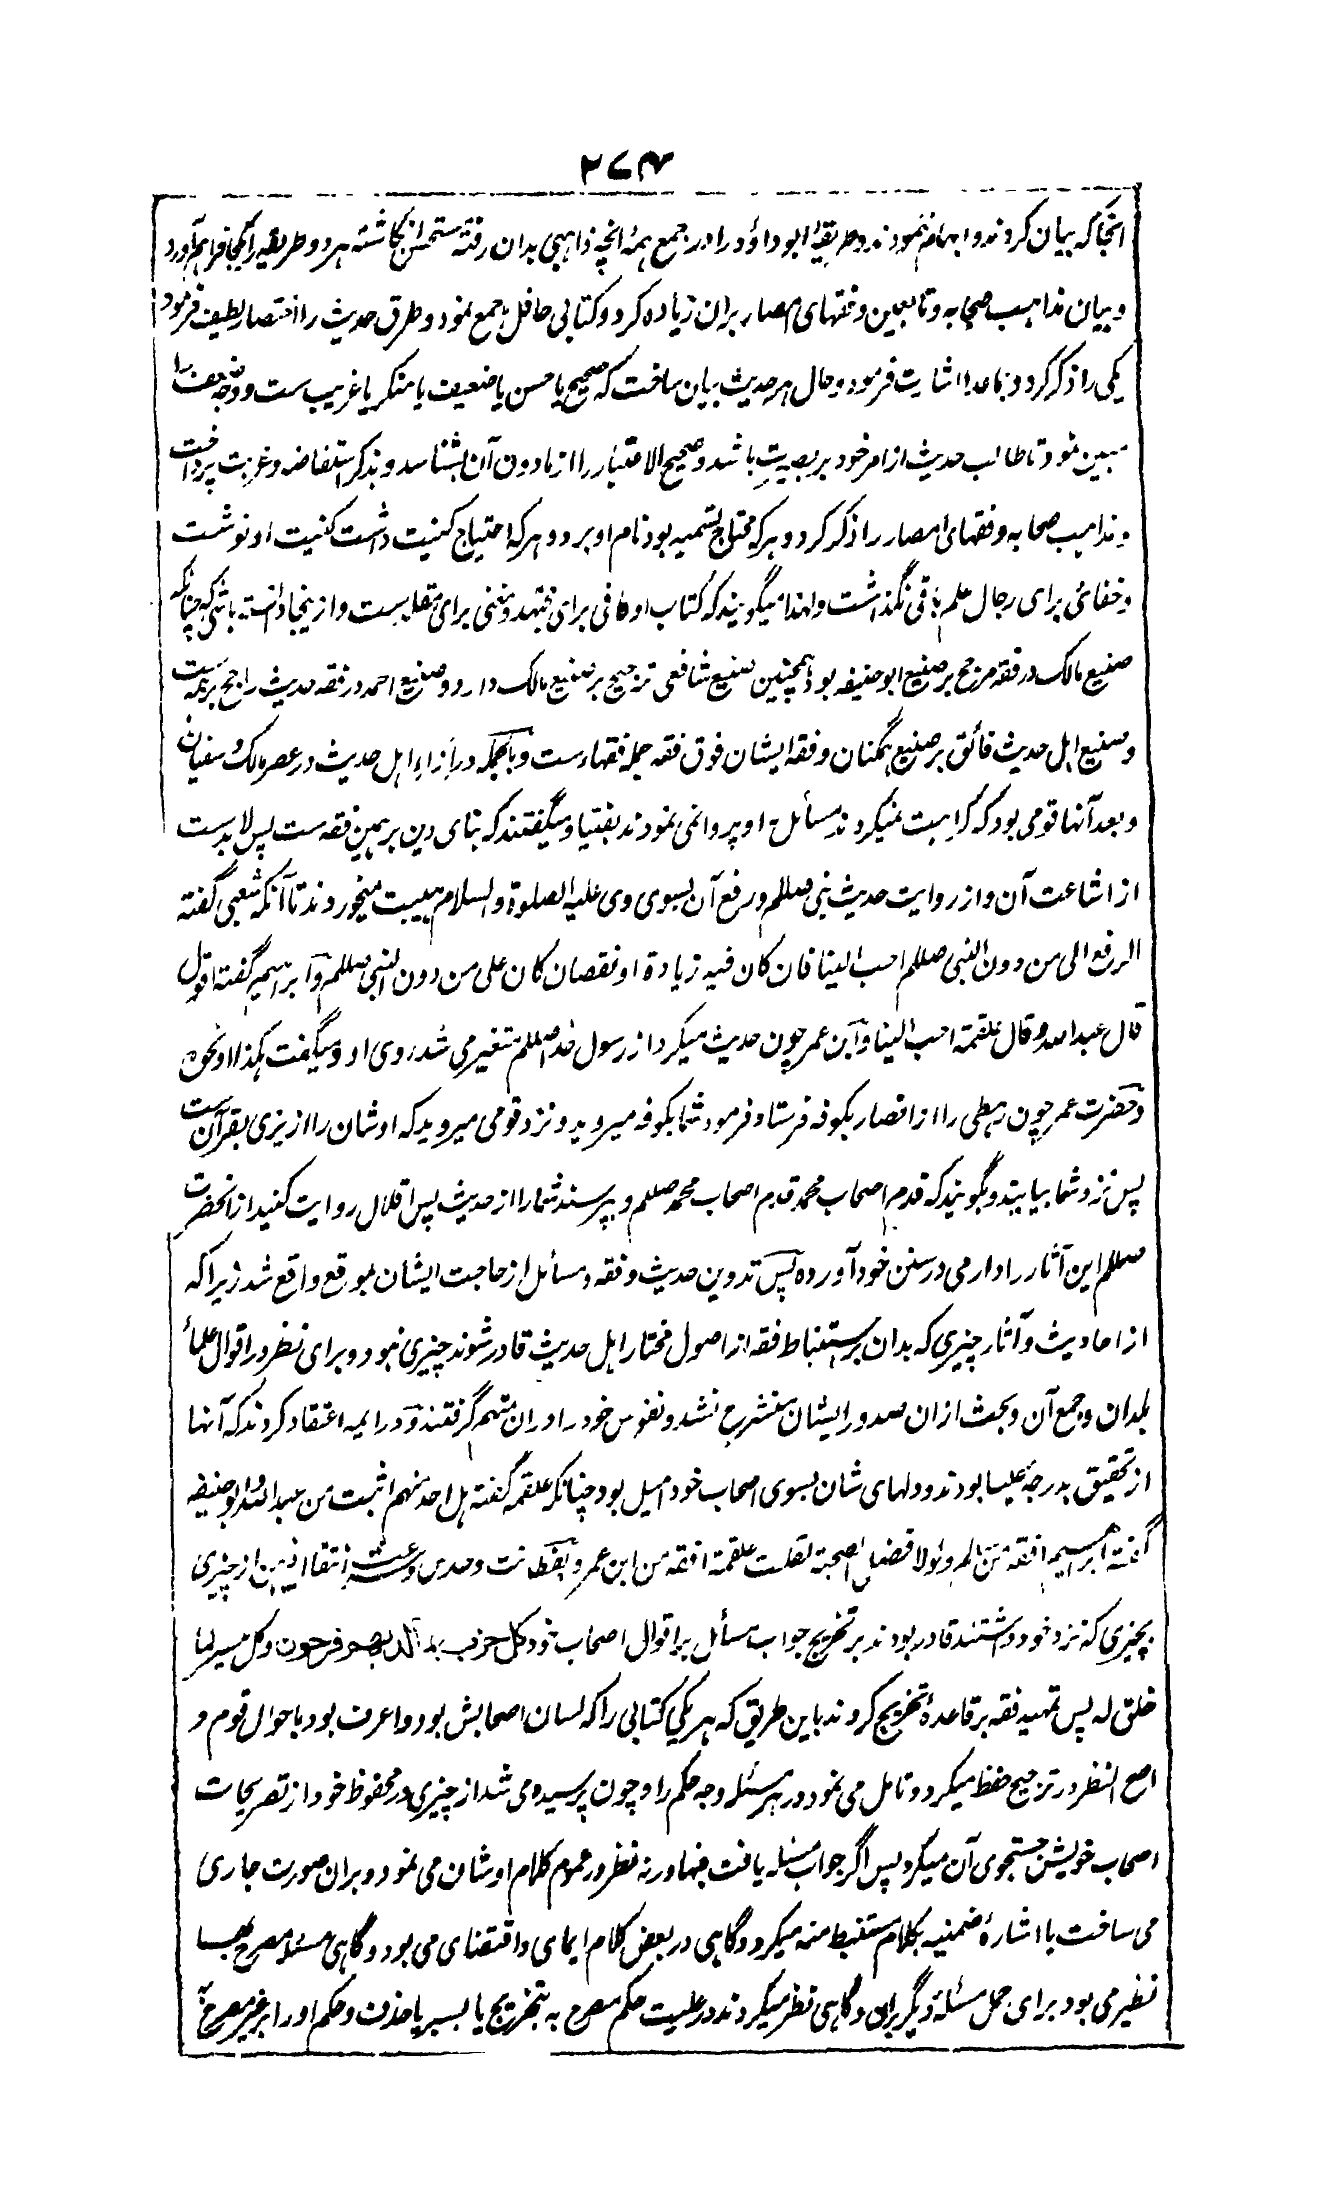 ۲۷۴
انجا که بیان کردند و ابهام ننمودند و طریقهٔ ابو داؤد را در جمع همهٔ انچه ذاهبی بدان رفته مستحسن انگاشته هر دو طریقه را یکجا فراهم آورد
و بیان مذاهب صحابه و تابعین و فقهای امصار بران زیاده کرد و کتابی حافل جمع نمود و طرق حدیث را اختصار لطیف فرمود
یکی را ذکر کرد و ماعدا اشارت فرمود و حال هر حدیث بیان ساخت که صحیح یا حسن یا ضعیف یا منکر یا غریب ست و وجه ضعف را
مبین نمود تا طالب حدیث از امر خود بر بصیرت باشد و صحیح الاعتبار را از مادون آن بشناسد و بذکر استفاضه و غربت پرداخت
و مذاهب صحابه و فقهای امصار را ذکر کرد و هر که محتاج تسمیه بود نام او برد و هر که احتیاج کنیت داشت کنیت او نوشت
و خفائی برای رجال علم باقی نگذاشت و لهذا میگویند که کتاب او کافی برای مجتهد و مغنی برای مقلدست و از ینجا دانسته باشی که چنانکه
صنیع مالک در فقه مرجح بر صنیع ابو حنیفه بود همچنین صنیع شافعی ترجیح بر صنیع مالک دارد و صنیع احمد در فقه حدیث راجح بر همه ست
و صنیع اهل حدیث فائق بر صنیع همگنان و فقه ایشان فوق فقه جمله فقهاءست و بالجمله در ازاء اهل حدیث در عصر مالک و سفیان
و بعد آنها قومی بود که کراهت نمیکردند مسائل را و پروا نمی نمودند بفتیا و میگفتند که بنای دین بر همین فقه ست پس لابدست
از اشاعت آن و از روایت حدیث نبی صللم و رفع آن بسوی وی علیه الصلوة و السلام هیبت میخوردند تا آنکه شعبی گفته
الرفع الی من دون النبی صللم احب الینا فان کان فیه زیادة او نقصان کان علی من دون النبی صللم و ابراهیم گفته اقول
قال عبد الله و قال علقمة احب الینا و ابن عمر چون حدیث میکرد از رسول خدا صللم متغیر می شد روی او و میگفت هکذا او نحوه
و حضرت عمر چون رهطی را از انصار بکوفه فرستاد فرمود شما بکوفه میروید و نزد قومی میروید که اوشان را ازیزی بقرآن ست
پس نزد شما بیایند و بگویند که قدم اصحاب محمد قدم اصحاب محمد صللم و بپرسند شما را از حدیث پس اقلال روایت کنید از انحضرت
صللم این آثار را دارمی در سنن خود آورده پس تدوین حدیث و فقه و مسائل از حاجت ایشان بموقع واقع شد زیرا که
از احادیث و آثار چیزی که بدان بر استنباط فقه از اصول مختار اهل حدیث قادر شوند چیزی نبود و برای نظر در اقوال علمأ
بلدان و جمع آن و بحث از ان صدور ایشان منشرح نشد و نفوس خود را دران متهم گرفتند و در ایمه اعتقاد کردند که آنها
از تحقیق بدرجهٔ علیا بودند و دلهای شان بسوی اصحاب خود امیل بود چنانکه علقمه گفته هل احد منهم اثبت من عبد الله و ابو حنیفه
گفته ابراهیم افقه من سالم و لولا فضل الصحبة لقلت علقمة افقه من ابن عمر و بفطانت و حدس و سرعت انتقال ذهن از چیزی
بچیزی که نزد خود داشتند قادر بودند بر تخریج جواب مسائل بر اقوال اصحاب خود کل حزب بما لدیهم فرحون و کل میسر لما
خلق له پس تمهید فقه بر قاعدهٔ تخریج کردند باین طریق که هر یکی کتابی را که لسان اصحابش بود و اعرف بود باحوال قوم و
اصح النظر در ترجیح حفظ میکرد و تامل می نمود در هر مسئله وجه حکم را و چون پرسیده می شد از چیزی در محفوظ خود از تصریحات
اصحاب خویش جستجوی آن میکرد پس اگر جواب مسئله یافت فبها ورنه نظر در عموم کلام اوشان می نمود و بران صورت جاری
می ساخت یا اشارهٔ ضمنیه بکلام مستنبط منه میکرد و گاهی در بعض کلام ایمای و اقتضای می بود و گاهی مسئله مصرح بها
نظیر می بود برای حمل مسئلهٔ دیگر بران و گاهی نظر میکردند در علیت حکم مصرح به بتخریج یا بسبر یا حذف و حکم او را بر غیر مصرح به